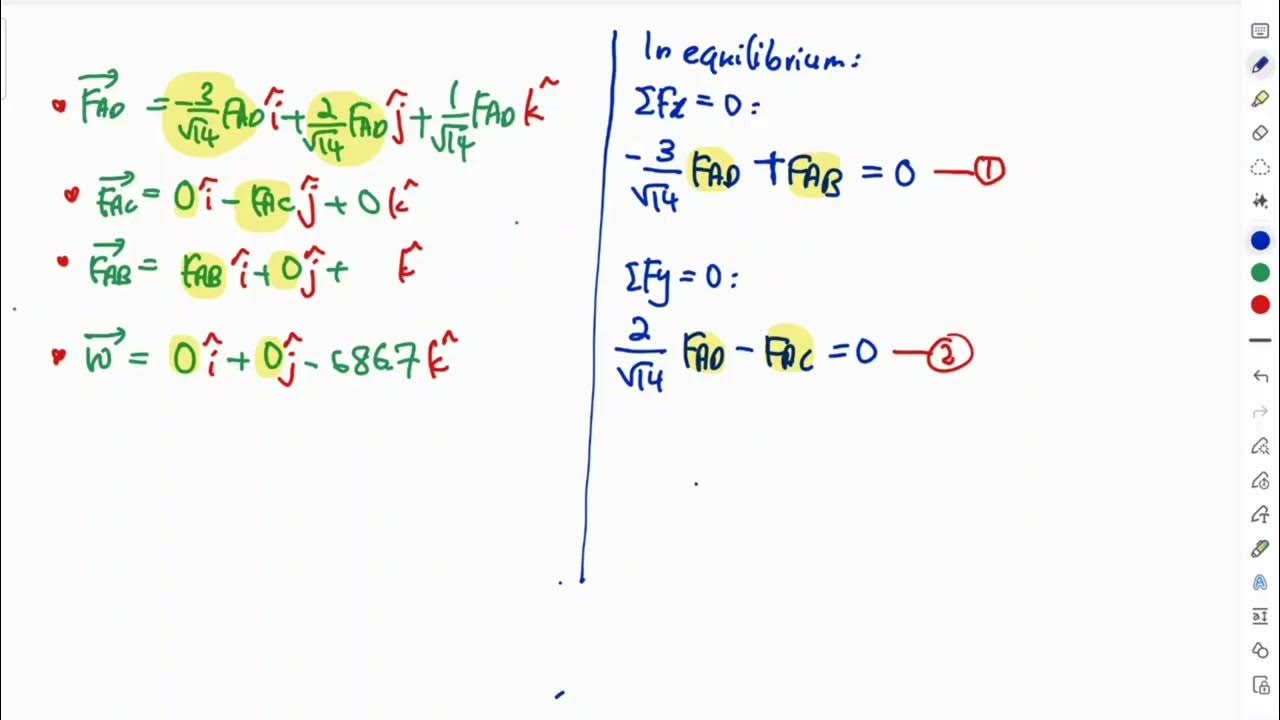 • F⃗AD = -3/√14 FAD î + 2/√14 FAD ĵ + 1/√14 FAD k̂
• F⃗AC = 0 î - FAC ĵ + 0 k̂
• F⃗AB = FAB î + 0 ĵ + k̂
• W⃗ = 0 î + 0 ĵ - 6867 k̂
In equilibrium:
ΣFx = 0:
-3/√14 FAD + FAB = 0 — ①
ΣFy = 0:
2/√14 FAD - FAC = 0 — ②